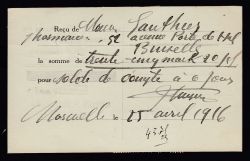 Reçu de Mr Gauthier
pharmacien, 52 avenue Porte de Hal
Bruxelles
la somme de trente cinq mark 20 pf
pour solde de compte à ce jour
Marcinelle 25 avril 1916